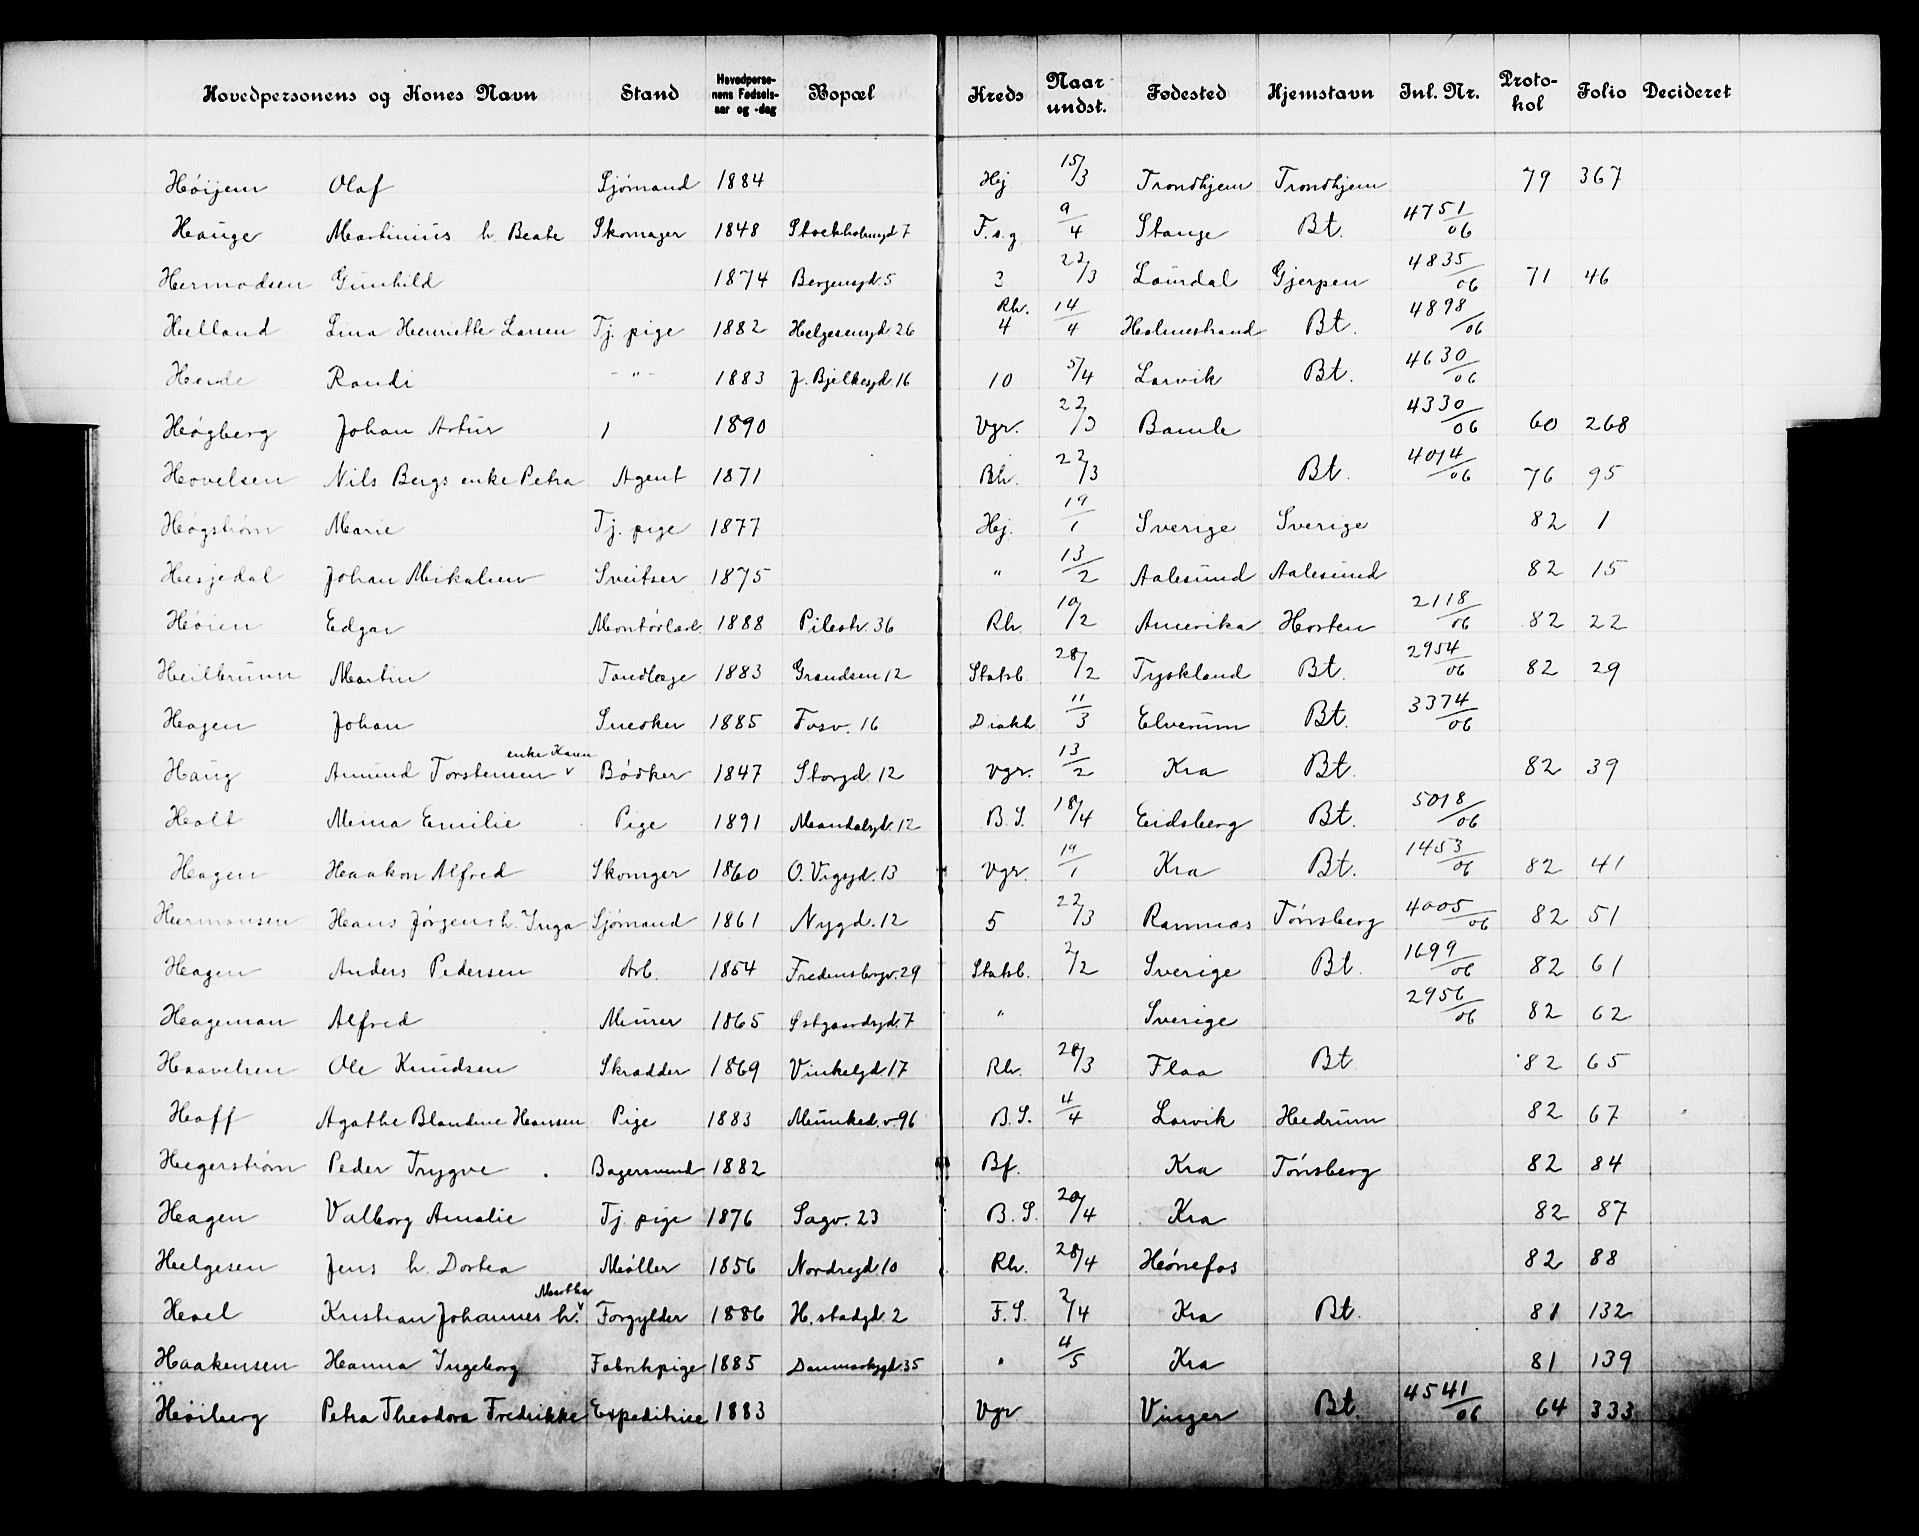 Hovedpersonens og Kones Navn Stand Hovedpersonens Fødselsaar og -dag Bopæl Kreds Naar undst. Fødested Hjemstavn Inl. Nr. Protokol Folio Decideret
Høijem Olaf Sjømand 1884 Hej 15/3 Trondhjem Trondhjem 79 367
Hauge Martinius h. Beate Skomager 1848 Stockholmgd 7 F.s.g. 9/4 Stange Bt. 4751/06
Hermodsen Gunhild 1874 Bergensgd. 5 3 22/3 Laurdal Gjerpen 4835/06 71 46
Helland Lina Henriette Larsen Tj. pige 1882 Helgesensgd. 26 Rh. 4 14/4 Holmestrand Bt. 4898/06
Heide Randi - " - 1883 J. Bjelkesgd. 16 10 5/4 Larvik Bt. 4630/06
Høgberg Johan Artur / 1890 Vgr. 22/3 Bamle 4330/06 60 268
Hovelsen Nils Bergs enke Petra Agent 1871 Bh. 22/3 Bt. 4014/06 76 95
Høgstrøm Marie Tj. pige 1877 Hej. 19/1 Sverige Sverige 82 1
Hesjedal Johan Mikalsen Sveitser 1875 " 13/2 Aalesund Aalesund 82 15
Høien Edgar Montørlærl. 1888 Pilestr. 36 Rh. 10/2 Amerika Horten 2118/06 82 22
Heilbrunn Martin Tandlæge 1883 Grændsen 12 Statsb. 28/2 Tyskland Bt. 2954/06 82 29
Hagen Johan Snedker 1885 Fosv. 16 Diakh. 11/3 Elverum Bt. 3374/06
Haug Amund Torstensen enke Karen Bødker 1847 Storgd. 12 Vgr. 13/2 Kra Bt. 82 39
Holt Mina Emilie Pige 1891 Mandalsgd. 12 B.S. 18/4 Eidsberg Bt. 5018/06
Hagen Haakon Alfred Skomger 1860 O. Vogsgd. 13 Vgr. 19/1 Kra Bt. 1453/06 82 41
Hermansen Hans Jørgens h. Inga Sjømand 1861 Nygd. 12 5 22/3 Ramnæs Tønsberg 4005/06 82 51
Hagen Anders Pedersen Arb. 1854 Fredensborgv. 29 Statsb. 2/2 Sverige Bt. 1699/06 82 61
Hageman Alfred Murer 1865 Østgaardsgd. 7 " Sverige 2956/06 82 62
Haavelsen Ole Knudsen Skrædder 1869 Vinkelgd 17 Rh. 28/3 Flaa Bt 82 65
Hoff Agathe Blandine Hansen Pige 1883 Munked.v. 96 B.S. 4/4 Larvik Hedrum 82 67
Hegerstrøm Peder Trygve Bagersvend 1882 Bf. Kra Tønsberg 82 84
Hagen Valborg Amalie Tj. pige 1876 Sagv. 23 B.S. 20/4 Kra 82 87
Helgesen Jens h. Dortea Møller 1856 Nordregd. 10 Rh. 28/4 Hønefos 82 88
Hoel Kristian Johannes h. Martha Forgylder 1886 H.stadgd. 2 F.S. 2/4 Kra Bt. 81 132
Haakensen Hanna Ingeborg Fabrikpige 1885 Danmarksgd. 35 " 4/5 Kra 81 139
Høiberg Petra Theodora Fredrikke Expeditrice 1883 Vgr Vinger Bt. 4541/06 64 333